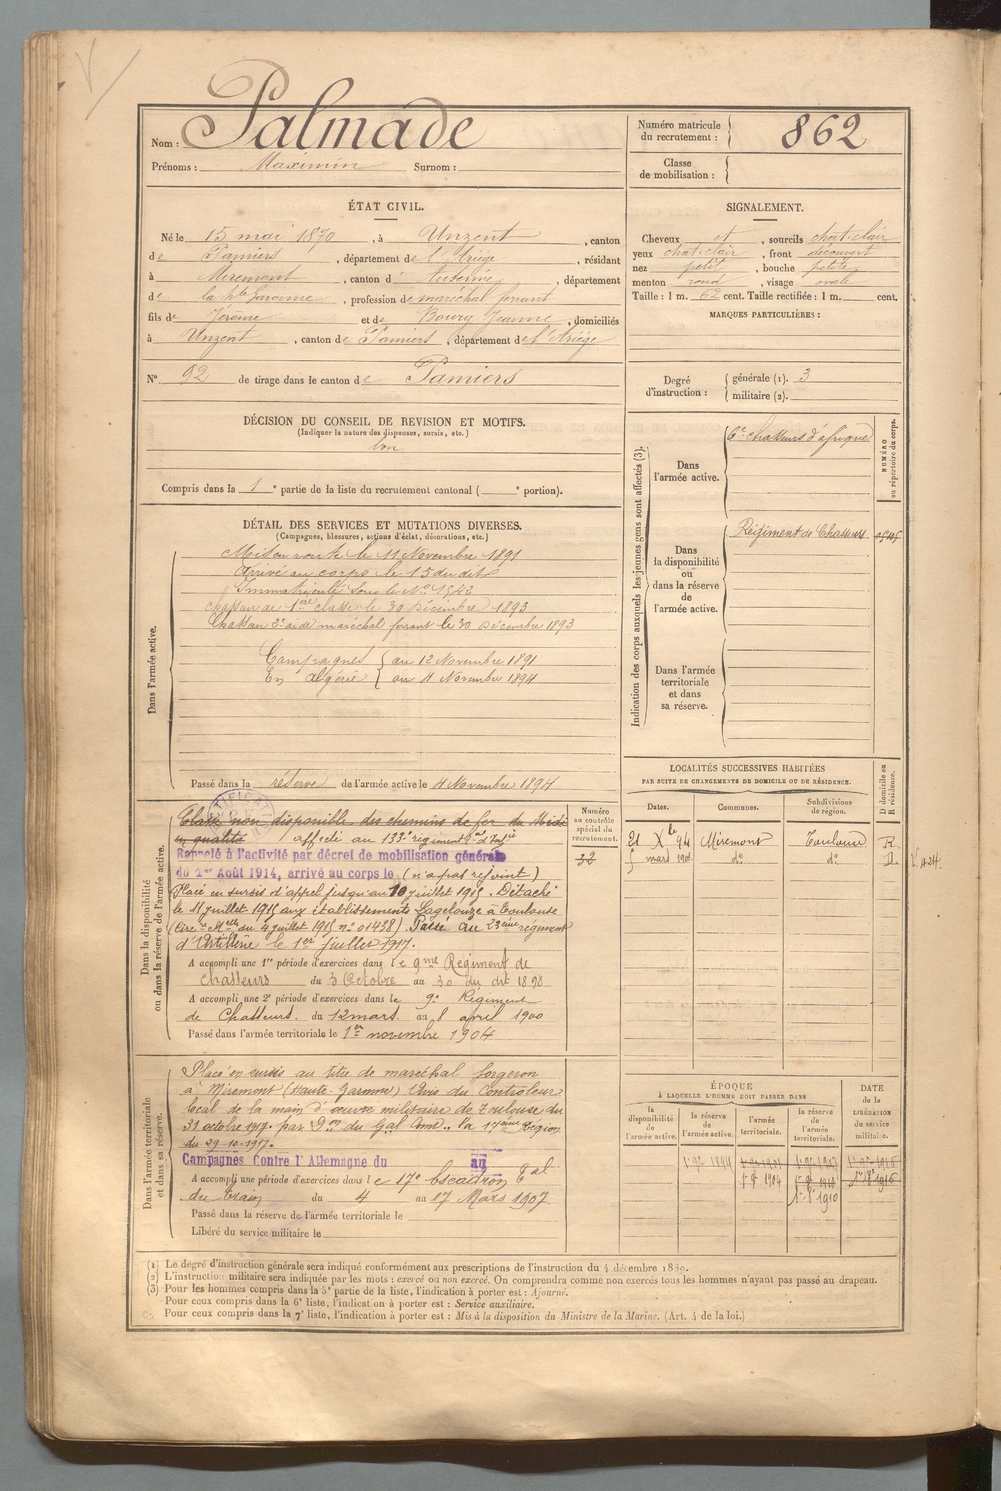 Nom : Palmade
Prénoms : Maximin Surnom :
Numéro matricule du recrutement : 862
Classe de mobilisation :
ÉTAT CIVIL.
Né le 15 mai 1870, à Unzent, canton
de Pamiers, département de l'Ariège, résidant
à Miremont, canton d' Auterive, département
de la hte Garonne, profession de maréchal ferrant
fils de Jérôme et de Bourg Jeanne, domiciliés
à Unzent, canton de Pamiers, département de l'Ariège
N° 92 de tirage dans le canton de Pamiers
SIGNALEMENT.
Cheveux et, sourcils chat. clair
yeux chat. clair, front découvert
nez petit, bouche petite
menton rond, visage ovale
Taille : 1 m. 62 cent. Taille rectifiée : 1 m. cent.
MARQUES PARTICULIÈRES :
Degré d'instruction : générale (1). 3
militaire (2).
DÉCISION DU CONSEIL DE REVISION ET MOTIFS.
(Indiquer la nature des dispenses, sursis, etc.)
bon
Compris dans la 1e partie de la liste du recrutement cantonal ( e portion).
DÉTAIL DES SERVICES ET MUTATIONS DIVERSES.
(Campagnes, blessures, actions d'éclat, décorations, etc.)
Dans l'armée active.
Mis en route le 11 Novembre 1891
Arrivé au corps le 15 du dit
Immatriculé sous le N° 1542
chasseur de 1ière classe le 30 Décembre 1893
Chasseur 2e aide maréchal ferrant le 30 Décembre 1893
Campagnes au 12 Novembre 1891
En Algérie au 11 Novembre 1894
Passé dans la réserve de l'armée active le 11 Novembre 1894
Indication des corps auxquels les jeunes gens sont affectés (3).
NUMÉRO au répertoire du corps.
Dans l'armée active.
6e chasseurs d'afrique
Dans la disponibilité ou dans la réserve de l'armée active.
Régiment de Chasseurs
Dans l'armée territoriale et dans sa réserve.
LOCALITÉS SUCCESSIVES HABITÉES
PAR SUITE DE CHANGEMENTS DE DOMICILE OU DE RÉSIDENCE.
Dates. Communes. Subdivisions de région. D domicile ou R résidence.
21 Xbre 94 Miremont Toulouse R.
5 mars 1901 do do D. V. 424
Dans la disponibilité ou dans la réserve de l'armée active.
Numéro au contrôle spécial du recrutement.
32
Classé non disponible des chemins de fer du Midi
en qualité affecté au 133e régiment al d'Infie
Rappelé à l'activité par décret de mobilisation générale
du 1er Août 1914, arrivé au corps le (n'a pas rejoint)
Placé en sursis d'appel jusqu'au 10 juillet 1915. Détaché
le 11 juillet 1915 aux établissements Lagelouze à Toulouse
(Circ. Mlle du 4 juillet 1915 n° 01438). Passé au 23ème régiment
d'Artillerie le 1er juillet 1917.
A accompli une 1re période d'exercices dans le 9me Régiment de
Chasseurs du 3 Octobre au 30 du dit 1898
A accompli une 2e période d'exercices dans le 9e Régiment
de Chasseurs. du 12 mars. au 8 avril 1900
Passé dans l'armée territoriale le 1er novembre 1904
Dans l'armée territoriale et dans sa réserve.
Placé en sursis au titre de maréchal forgeron
à Miremont (Haute-Garonne) Avis du Contrôleur
local de la main d'œuvre militaire de Toulouse du
31 octobre 1917. par Don du Gal Comt. la 17ème Région
du 29-10-1917.
Campagnes Contre l'Allemagne du au
A accompli une période d'exercices dans le 17e Escadron tal
du train du 4 au 17 Mars 1907.
Passé dans la réserve de l'armée territoriale le
Libéré du service militaire le
ÉPOQUE
À LAQUELLE L'HOMME DOIT PASSER DANS
DATE de la LIBÉRATION du service militaire.
la disponibilité de l'armée active. la réserve de l'armée active. l'armée territoriale. la réserve de l'armée territoriale.
1er 9bre 1894
1er 9bre 1904
1er 9bre 1910
(1) Le degré d'instruction générale sera indiqué conformément aux prescriptions de l'instruction du 4 décembre 1889.
(2) L'instruction militaire sera indiquée par les mots : exercé ou non exercé. On comprendra comme non exercés tous les hommes n'ayant pas passé au drapeau.
(3) Pour les hommes compris dans la 5e partie de la liste, l'indication à porter est : Ajourné.
Pour ceux compris dans la 6e liste, l'indication à porter est : Service auxiliaire.
Pour ceux compris dans la 7e liste, l'indication à porter est : Mis à la disposition du Ministre de la Marine. (Art. 4 de la loi.)